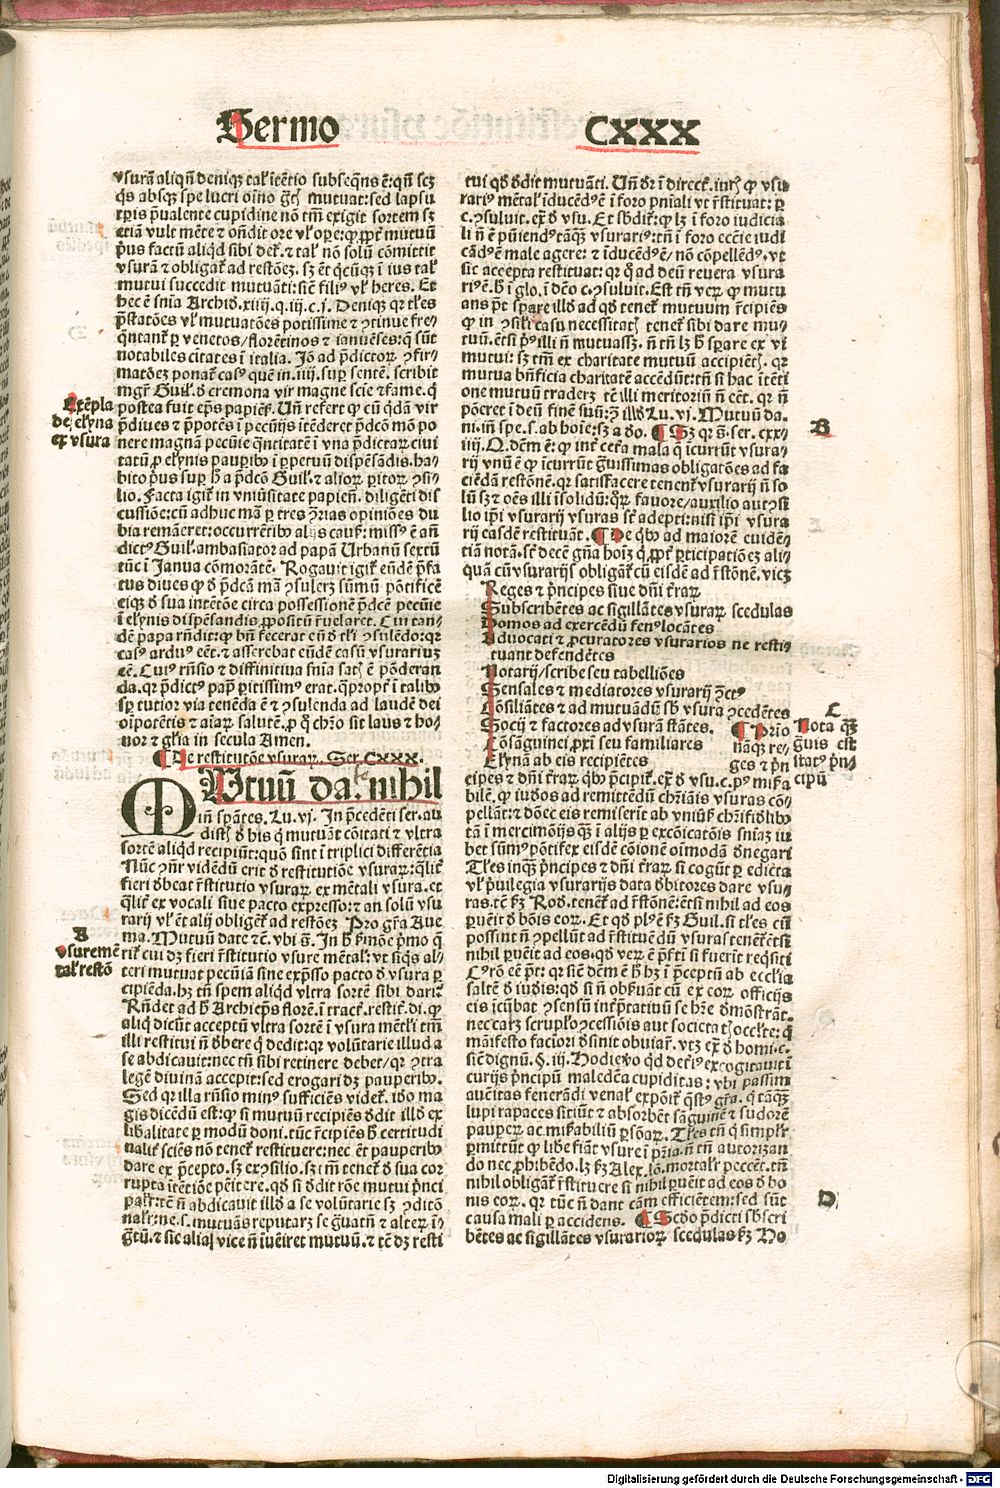 Sermo CXXX
vsurã aliqñ deniqz tal' ĩtẽtio subseqñs ẽ: qñ scz
q̃s absqz spe lucri oĩno g̃tis mutuat: sed lapsu
rpis p̃ualente cupidine nõ tm̃ exigit sortem sz
etiã vult mẽte ⁊ oñdit ore vl' oꝑe: ꝙ ꝓpt' mutuũ
p̃us factũ aliqd sibi det'. ⁊ tal' nõ solũ cõmittit
vsurã ⁊ obligat' ad restõez. sz ẽt q̃cũqz ĩ ius tal'
mutui succedit mutuãti: sicẽ fili⁹ vl' heres. Et
hec ẽ snĩa Archiđ. xiiij. q. iij. c. j. Deniqz qz t'les
p̃statões vl' mutuatões potissime ⁊ ꝯtinue fre-
q̃ntant' ꝑ venetos/ florẽtinos ⁊ ianuẽses: q̃ sũt
notabiles citates ĩ italia. Jõ ad p̃dictoꝝ ꝯfir-
matõez ponat' cas⁹ quẽ in. iiij. suꝑ sentẽ. scribit
mgr̃ Guil'. đ cremona vir magne scie ⁊ fame. q̃
postea fuit ep̃s papien̄. Uñ refert ꝙ cũ q̃dã vir
p̃diues ⁊ p̃potẽs ĩ pecũijs ĩtẽderet p̃dcõ mõ po
nere magnã pecũie q̃ntitatẽ ĩ vna p̃dictaꝝ ciui
tatũ ꝓ el'ynis pauꝑib⁹ ĩ ꝑpetuũ dispẽsãdis. ha-
bito p̃us suꝑ h̃ a p̃dcõ Guil'. ⁊ alioꝝ ꝑitoꝝ ꝯsi-
lio. Facta igit' in vniũsitate papien̄. diligẽti dis
cussiõe: cũ adhuc mã ꝑ tres ꝯ̃rias opiniões du
bia remãeret: occurrẽtib⁹ alijs caus': miss⁹ ẽ añ
dict⁹ Guil'. ambasiator ad papã Urbanũ sextũ
tũc ĩ Janua cõmorãtẽ. Rogauit igit' eũdẽ p̃fa
tus diues ꝙ đ p̃dcã mã ꝯsuleꝝ sũmũ põtificẽ
eiqz đ sua intẽtõe circa possessionẽ p̃dcẽ pecũie
ĩ el'ynis dispẽsandis ꝓpositũ r̃uelaret. Cui tan-
dẽ papa rñdit: ꝙ bñ fecerat eũ đ t'li ꝯsulẽdo: qz
cas⁹ ardu⁹ eẽt. ⁊ asserebat eũdẽ casũ vsurariuz
eẽ. Cui⁹ rñsio ⁊ diffinitiua snĩa satis ẽ põderan
da. qz p̃dict⁹ pap̃ ꝑitissim⁹ erat. q̃propt' ĩ talib⁹
sꝑ tutior via tenẽda ẽ ⁊ ꝯsulenda ad laudẽ dei
oĩpotẽtis ⁊ aĩaꝝ salutẽ. ꝓ q̃ ch̃o sit laus ⁊ ho-
nor ⁊ gl'ia in secula Amen.
¶ De restitutõe vsuraꝝ. Ser. CXXX.
MUtuũ da. nihil
iñ spãtes. Lu. vj. In p̃cedẽti ser. au
distis đ his q̃ mutuãt cõitati ⁊ vltra
sortẽ aliqd recipiũt: quõ sint ĩ triplici differẽtia
Nũc ꝯñr videdũ erit đ restitutiõe vsuraꝝ: q̃lit'
fieri đbeat r̃stitutio vsuraꝝ ex mẽtali vsura. et
q̃lit' ex vocali siue pacto expresso: ⁊ an solũ vsu
rarij vl' ẽt alij obligẽt' ad restõez Pro gr̃a Aue
ma. Mutuũ date ⁊c. vbi s̃. In h̃ s'mõe p̃mo q̃
rit' cui dz fieri r̃stitutio vsure mẽtal': vt siq̃s al-
teri mutuat pecũiã sine exp̃sso pacto đ vsura ꝑ
cipiẽda. hz tñ spem aliqd vltra sortẽ sibi dari:
Rñdet ad h̃ Archiep̃s florẽ. ĩ tract'. restit'. di. ꝙ
aliq̃ dicũt acceptũ vltra sortẽ ĩ vsura mẽtl'i tm̃
illi restitui ñ đbere q̃ dedit: qz volũtarie illud a
se abdicauit: nec tñ sibi retinere debet/ qz ꝯtra
legẽ diuinã accepit: sed erogari dz pauperib⁹.
Sed qz illa rñsio min⁹ sufficiẽs videt'. iđo ma
gis dicẽdũ est: ꝙ si mutuũ recipiẽs đdit illđ ex
lib̃alitate ꝑ modũ doni. tũc r̃cipiẽs h̃ certitudi
nalit' sciẽs nõ tenet' restituere: nec ẽt pauperib⁹
dare ex p̃cepto. sz ex ꝯsilio. sz tm̃ tenet' đ sua cor
rupta ĩtẽtiõe pẽitere. qđ si đdit rõe mutui p̃nci
palit': tẽ ñ abdicauit illđ a se volũtarie sz ꝯditõ
nalit': ne. s. mutuãs reputaꝝ se g̃uatũ ⁊ alter ĩ-
g̃tũ. ⁊ sic aliaj vice ñ ĩuẽiret mutuũ. ⁊ tẽ dz resti
Exẽpla
de el'yna
ex vsura
A
vsure mẽ
tal' restõ
tui qđ đdit mutuãti. Uñ đr ĩ direct'. iuris ꝙ vsu
rari⁹ mẽtal' ĩducẽd⁹ ẽ ĩ foro pniali vt r̃stituat: ꝑ
c. ꝯsuluit. ex̃ đ vsu. Et sb̃dit': ꝙ lz ĩ foro iudicia
li ñ ẽ pũiend⁹ tãqz vsurari⁹: tñ ĩ foro eccẽie iudi
cãd⁹ ẽ male agere: ⁊ ĩducẽd⁹ ẽ/ nõ cõpellẽd⁹. vt
sic accepta restituat: qz q̃ ad deũ reuera vsura
ri⁹ ẽ. h̃ ĩ glo. ĩ dẽo c. ꝯsuluit. Est tñ veꝝ ꝙ mutu
ans p̃t spare illđ ad qđ tenet' mutuum r̃cipiẽs
ꝙ in ꝯsil'i casu necessitatis tenet' sibi dare mu-
tuũ. etsi p̃us illi ñ mutuassz. ñ tñ lz h̃ sperare ex vi
mutui: sz tm̃ ex charitate mutuũ accipiẽtis. qz
mutua bñficia charitatẽ accẽdũt: tñ si hac ĩtẽti
one mutuũ traderz tẽ illi meritoriũ ñ eẽt. qz ñ
põeret ĩ deũ finẽ suũ: ꝯ̃ illđ Lu. vj. Mutuũ da.
ni. iñ spe. s. ab hoĩe: sz a đo. ¶ Sz qz s̃. ser. cxx-
iiij. Q. dẽm ẽ: ꝙ int' cet'a mala q̃ ĩcurrũt vsura-
rij vnũ ẽ ꝙ ĩcurrũt g̃uissimas obligatões ad fa
ciẽdã restõnẽ. qz satisfacere tenent' vsurarij ñ so
lũ sz ⁊ oẽs illi ĩ solidũ: q̃ꝝ fauore/ auxilio aut ꝯsi
lio ip̃i vsurarij vsuras st' adepti: nisi ip̃i vsura
rij easdẽ restituãt. ¶ De qb⁹ ad maiorẽ euidẽ-
tiã notã. st' decẽ gña hoĩz q̃ ꝓpt' ꝑticipatiõez ali-
quã cũ vsurarijs obligãt' cũ eisdẽ ad r̃stõnẽ. vicz
Reges ⁊ p̃ncipes siue dñi t'raꝝ
Subscribẽtes ac sigillãtes vsuraꝝ scedulas
Domos ad exercẽdũ fen⁹ locãtes
Aduocati ⁊ ꝓcuratores vsurarios ne resti-
tuant defendẽtes
Notarij/ scribe seu tabelliões
Sensales ⁊ mediatores vsurarij ꝯ̃ct⁹
Cõsiliãtes ⁊ ad mutuãdũ sb̃ vsura ꝯcedẽtes
Socij ⁊ factores ad vsurã stãtes.
Cõsãguinei, ꝓxi seu familiares
El'ynã ab eis recipiẽtes
¶ Prio
nãqz re/
ges ⁊ p̃n
cipes ⁊ dñi t'raꝝ qb⁹ p̃cipit'. ex̃ đ vsu. c. p⁹ mis'a
bilẽ. ꝙ iuđos ad remittẽdũ ch'ianis vsuras cõ-
pellãt: ⁊ donec eis remiserit ab vniũs' ch'ifidlib⁹
tã ĩ mercimõijs q̃z ĩ alijs ꝑ excõicatõis snĩaz iu
bet sũm⁹ põtifex eisdẽ cõionẽ oĩmodã đnegari
T'les inq̃z p̃ncipes ⁊ dñi t'raꝝ si cogũt ꝑ edicta
vl' p̃uilegia vsurarijs data đbitores dare vsu-
ras. tẽ s'z Rođ. tenet' ad r̃stõnẽ: etsi nihil ad eos
ꝑuẽit đ bõis eoꝝ. Et qđ pl⁹ ẽ s'z Guil. si t'les cũ
possint ñ ꝯpellũt ad r̃stituẽdũ vsuras tenet' etsi
nihil ꝑuẽit ad eos. qđ veꝝ ẽ p̃sti si fuerit req̃siti
C⁹ rõ eẽ p̃t: qz siẽ dẽm ẽ h̃ hz ĩ p̃ceptũ ab ecclia
saltẽ đ iuđis: qđ si ñ obs'uãt cũ ex coꝝ officijs
eis icũbat ꝯsensũ int'p̃tatiuũ se hr̃e đmõstrãt.
nec carz scrupl'o ꝯcessiõis aut societatis occl'te: q̃
mãifesto faciori đsinit obuiar'. vtz ex̃ đ homi. c.
siẽ dignũ. §. iij. Hodie v⁹o qđ det'i⁹ excogitauit ĩ
curijs p̃ncipũ maledẽa cupiditas: vbi passim
auẽitas fenerãdi venal' expõit' q̃st⁹ gr̃a. q̃ tãqz
lupi rapaces sitiũt ⁊ absorbẽt sãguinẽ ⁊ sudorẽ
pauꝑeꝝ ac mis'abiliũ ꝑsõaꝝ. T'les tñ q̃ simpl'r
ꝑmittũt ꝙ libe fiãt vsure ĩ pr̃ia. ñ tñ autorizan
do nec ꝓhibẽdo. lz s'z Alex. lõ. mortalit' peccẽt. tñ
nihil obligãt' r̃stituere si nihil ꝑuẽit ad eos đ bo
nis eoꝝ. qz tũc ñ dant cam efficiẽtem: sed sũt
causa mali ꝑ accidens. ¶ Scđo p̃dicti sb̃scri
bẽtes ac sigillãtes vsurarioꝝ scedulas s'z Ho
B
C
Nota q̃z
g̃uis est
stat⁹ p̃n-
cipũ
D
Digitalisierung gefördert durch die Deutsche Forschungsgemeinschaft - DFG